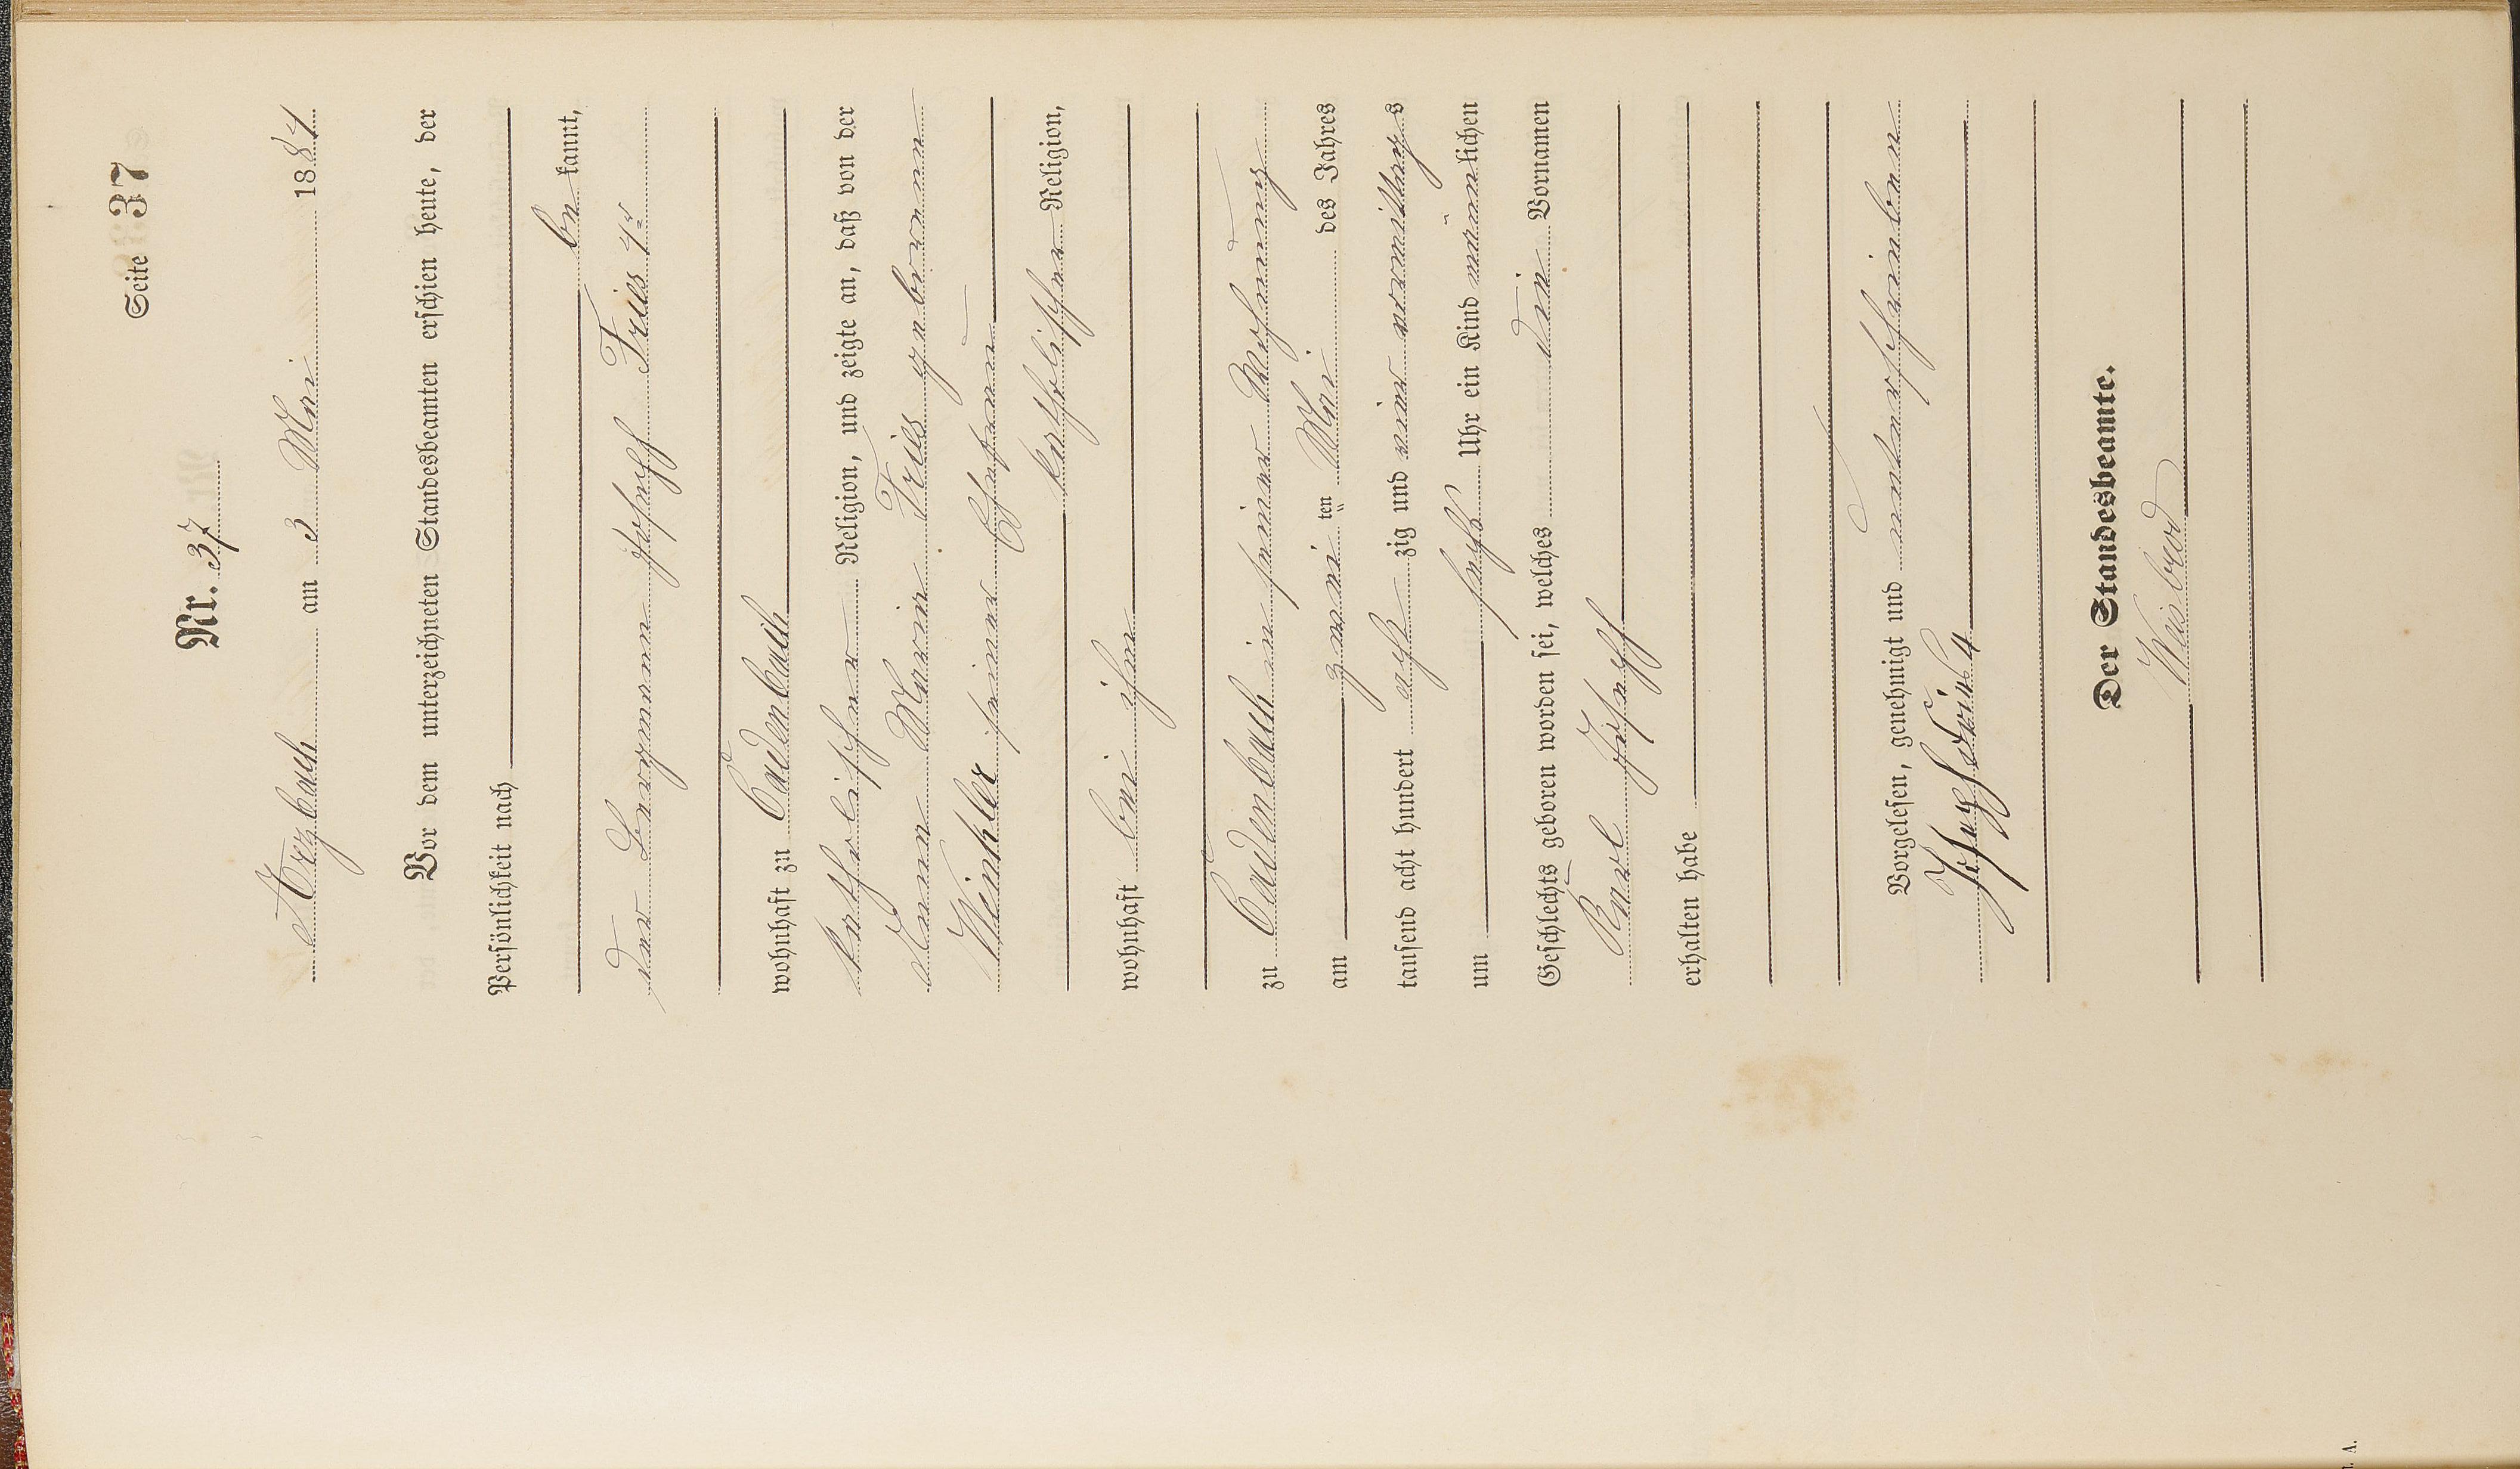 Seite 37
Nr. 37
Arzbach am 3 Mai 1884
Vor dem unterzeichneten Standesbeamten erschien heute, der
Persönlichkeit nach
be kannt,
der Bergmann Joseph Fries 4r
wohnhaft zu Cadenbach
katholischer Religion, und zeigte an, daß von der
Anna Maria Fries geborenen
Winkler seiner Ehefrau
katholischer Religion,
wohnhaft bei ihm
zu Cadenbach in seiner Wohnung
am zwei ten Mai des Jahres
tausend acht hundert acht zig und vier vormittags
um sechs Uhr ein Kind männlichen
Geschlechts geboren worden sei, welches die Vornamen
Karl Joseph
erhalten habe
Vorgelesen, genehmigt und unterschrieben
Joseph Fries 4
Der Standesbeamte.
Weisbrod